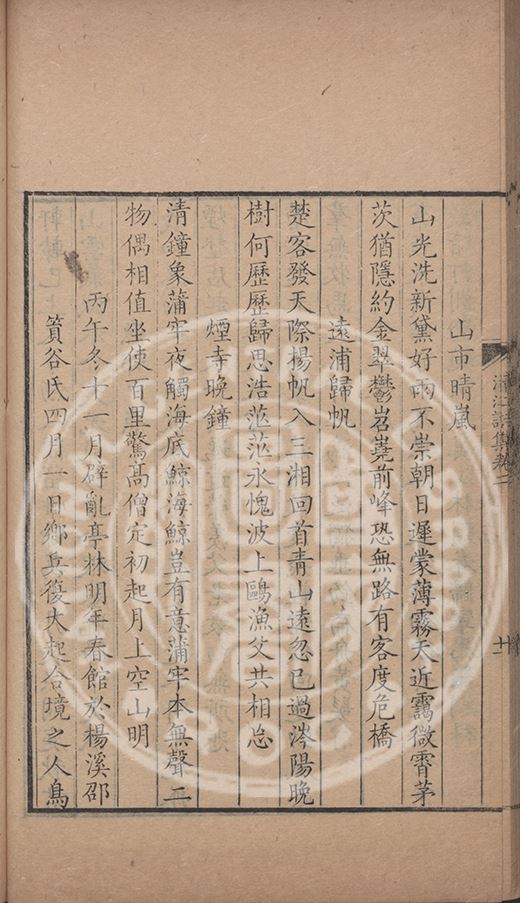 山市晴嵐
山光洗新黛好雨不崇朝日遲蒙薄霧天近靄微霄茅
茨猶隱約金翠鬱岧嶤前峰恐無路有客度危橋
遠浦歸帆
楚客發天際揚帆入三湘回首青山遠忽已過涔陽晚
樹何歷歷歸思浩茫茫永愧波上鷗漁父共相忘
煙寺晚鐘
清鐘象蒲牢夜觸海底鯨海鯨豈有意蒲牢本無聲二
物偶相值坐使百里驚高僧定初起月上空山明
丙午冬十一月辟亂亭林明年春館於楊溪邵
篔谷氏四月一日鄉兵復大起合境之人鳥
詩集卷二
十